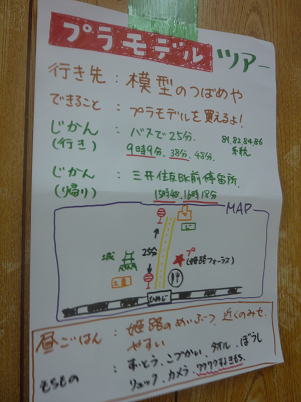 プラモデル ツアー
行き先：模型のつばめや
できること：プラモデルを買えるよ!
じかん：バスで25分. 81,82,84,86
(行き) 9時9分、38分、48分. 系統
じかん：三井住友BK前停留所.
(帰り) 15時48、16時18分
MAP
25分
城
プ
(姫路フォーラス)
ひめじ
昼ごはん：姫路のめいぶつ、近くのみせ、
やすい
もちもの すいとう、こづかい、タオル、ぼうし
リュック、カメラ、